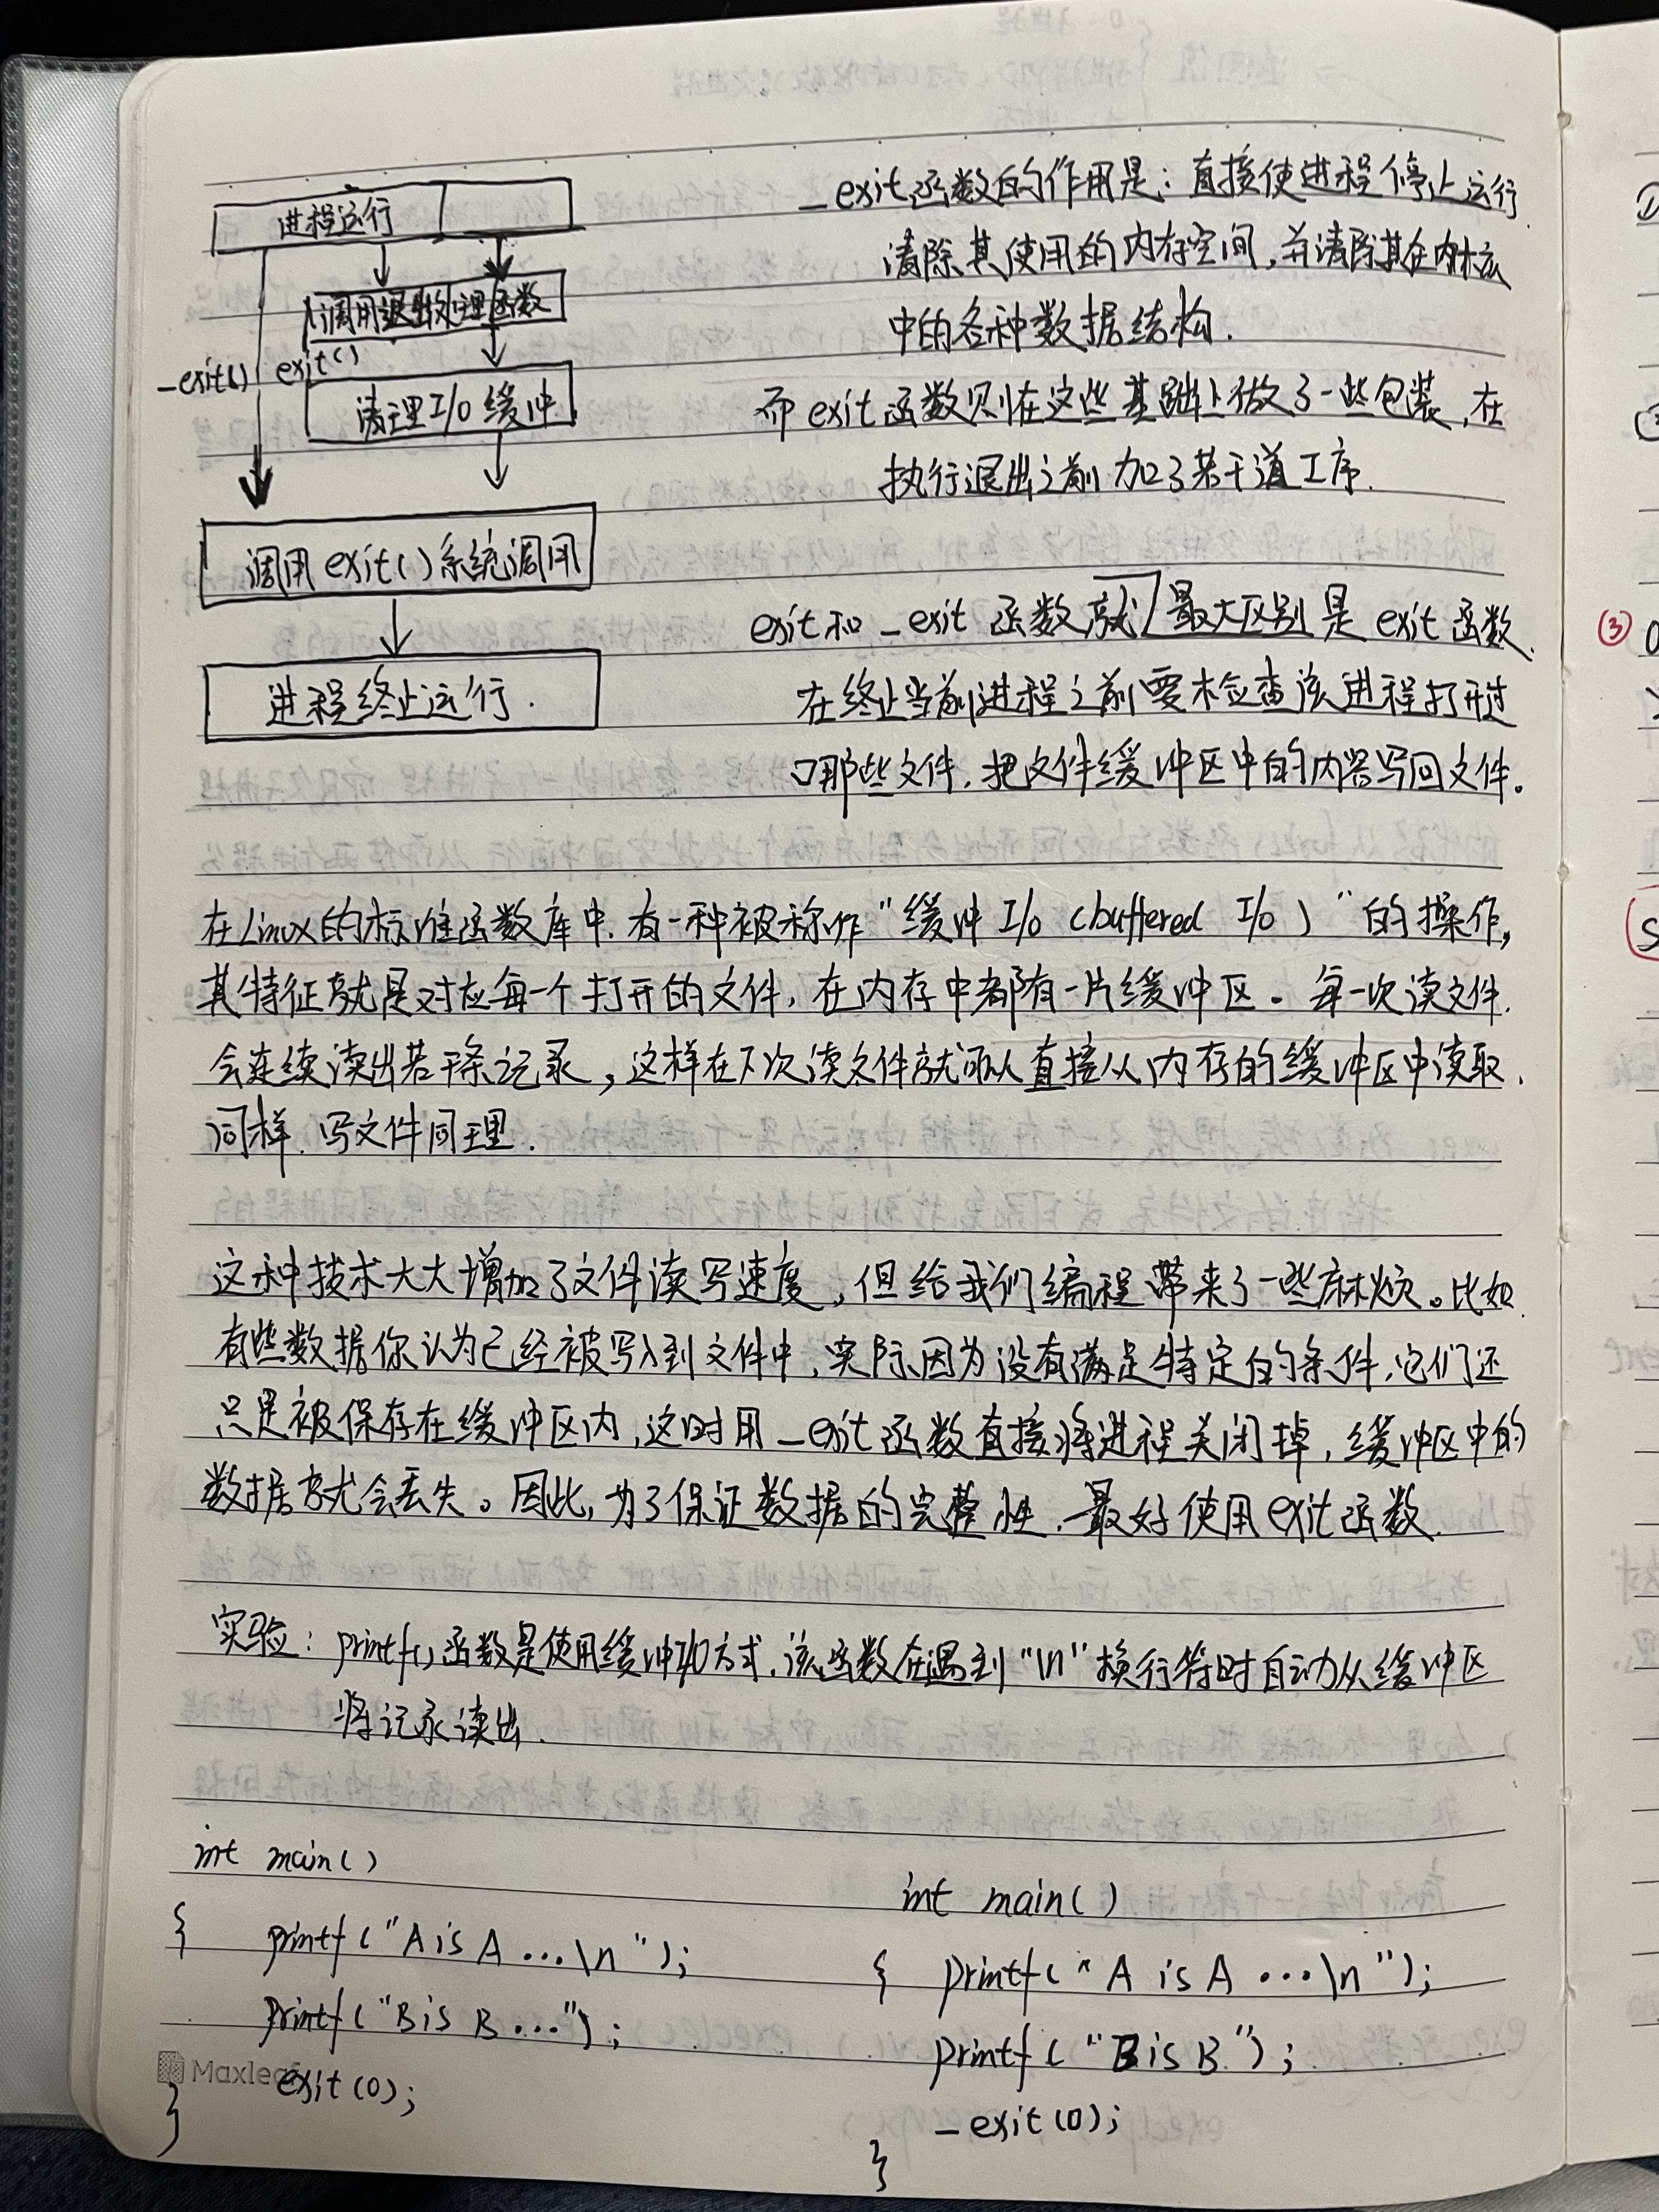 进程运行
调用退出处理函数
_exit() exit()
清理I/O缓冲
调用exit()系统调用
进程终止运行.
_exit函数的作用是:直接使进程停止运行
清除其使用的内存空间,并清除其在内核
中的各种数据结构.
而exit函数则在这些基础上做了一些包装,在
执行退出之前加了若干道工序.
exit和_exit函数就 最大区别是exit函数
在终止当前进程之前要检查该进程打开过
哪些文件.把文件缓冲区中的内容写回文件。
在Linux的标准函数库中.有一种被称作"缓冲I/O (buffered I/O)"的操作,
其特征就是对应每一个打开的文件,在内存中都有一片缓冲区。每一次读文件.
会连续读出若干条记录,这样在下次读文件就可以直接从内存的缓冲区中读取.
同样.写文件同理.
这种技术大大增加了文件读写速度,但给我们编程带来了一些麻烦。比如
有些数据你认为已经被写入到文件中,实际因为没有满足特定的条件,它们还
只是被保存在缓冲区内,这时用_exit函数直接将进程关闭掉,缓冲区中的
数据就会丢失。因此,为了保证数据的完整性.最好使用exit函数.
实验: printf()函数是使用缓冲I/O方式.该函数在遇到"\n"换行符时自动从缓冲区
将记录读出.
int main()
{ printf("A is A ...\n");
printf("B is B ...");
exit(0);
}
int main()
{ printf("A is A ...\n");
printf("B is B");
_exit(0);
}
Maxleaf
③